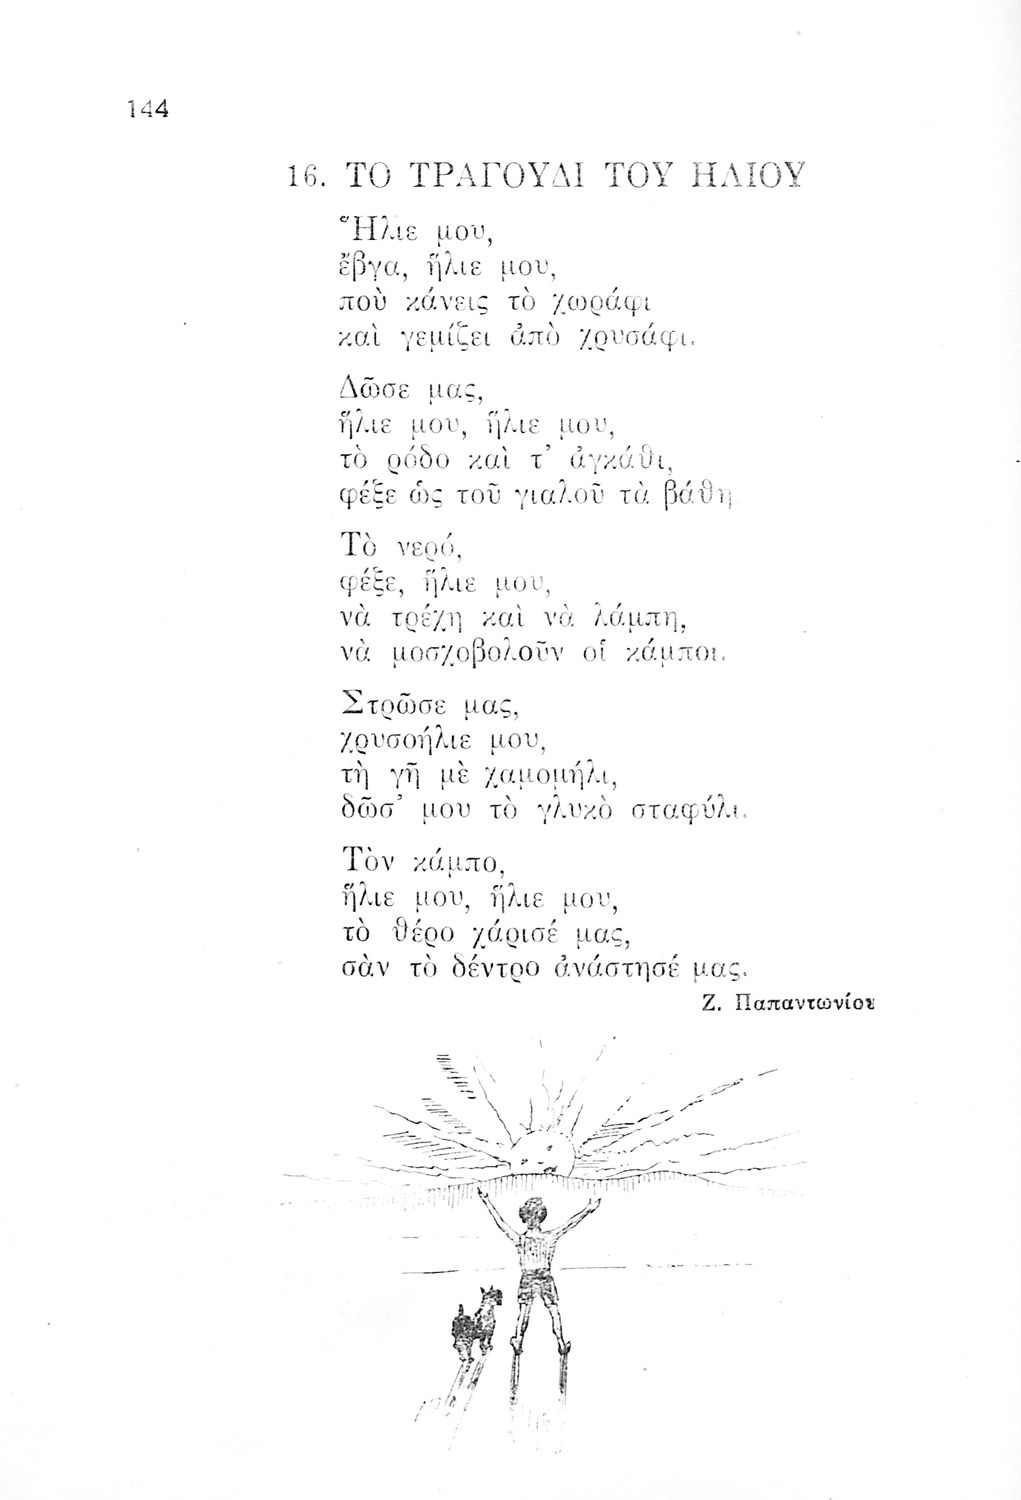 144
16. ΤΟ ΤΡΑΓΟΥΔΙ ΤΟΥ ΗΛΙΟΥ
Ἥλιε μου,
ἔβγα, ἥλιε μου,
ποὺ κάνεις τὸ χωράφι
καὶ γεμίζει ἀπὸ χρυσάφι.
Δῶσε μας,
ἥλιε μου, ἥλιε μου,
τὸ ρόδο καὶ τ’ ἀγκάθι,
φέξε ὡς τοῦ γιαλοῦ τὰ βάθη
Τὸ νερό,
φέξε, ἥλιε μου,
νὰ τρέχῃ καὶ νὰ λάμπῃ,
νὰ μοσχοβολοῦν οἱ κάμποι.
Στρῶσε μας,
χρυσοήλιε μου,
τὴ γῆ μὲ χαμομήλι,
δῶσ’ μου τὸ γλυκὸ σταφύλι.
Τὸν κάμπο,
ἥλιε μου, ἥλιε μου,
τὸ θέρο χάρισέ μας,
σὰν τὸ δέντρο ἀνάστησέ μας.
Ζ. Παπαντωνίου